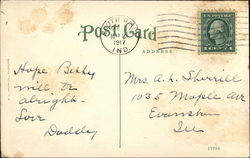 Post Card
1917
IND.
ADDRESS
Hope Betty
will be
alright.
Love
Daddy
Mrs. A. L. Sherrill
1035 Maple Ave
Evanston
Ill